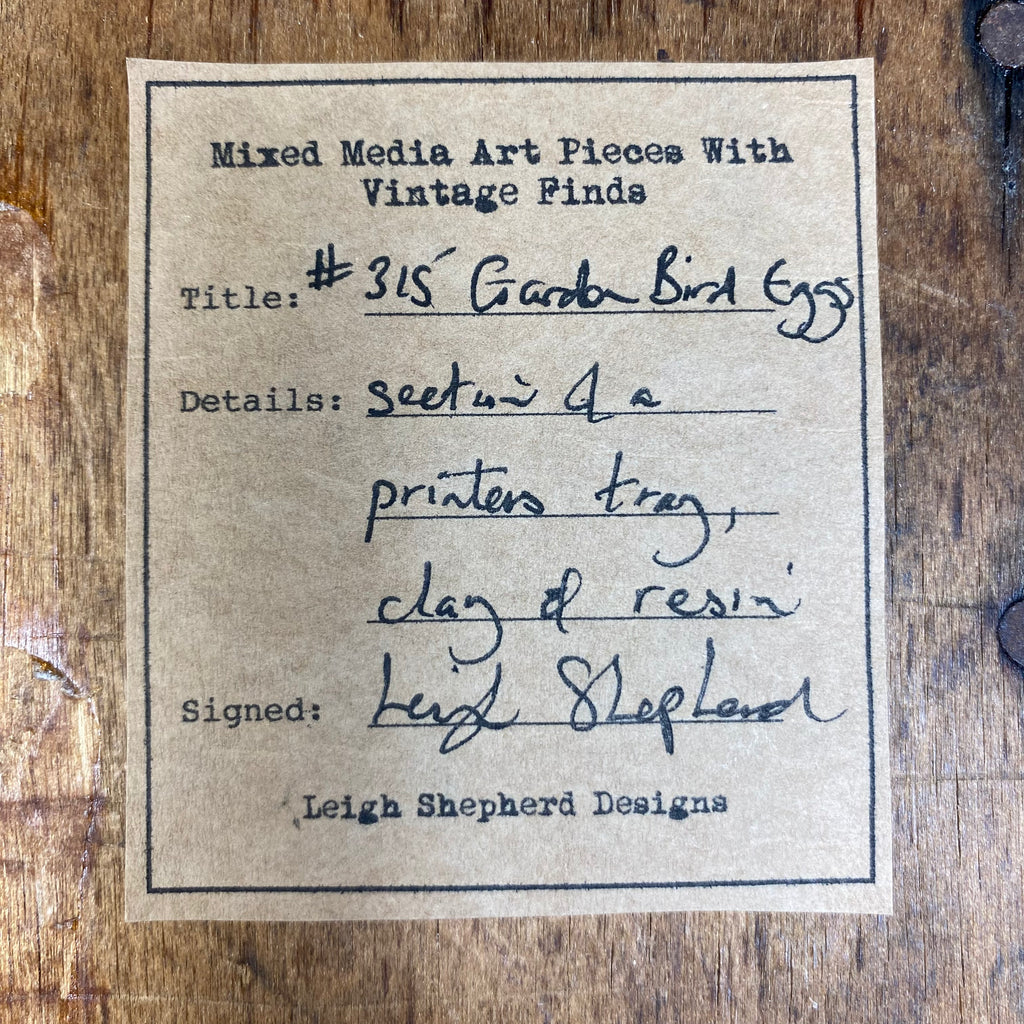 Mixed Media Art Pieces With
Vintage Finds
Title: #315 Garden Bird Eggs
Details: section of a
printers tray,
clay & resin
Signed: Leigh Shepherd
Leigh Shepherd Designs